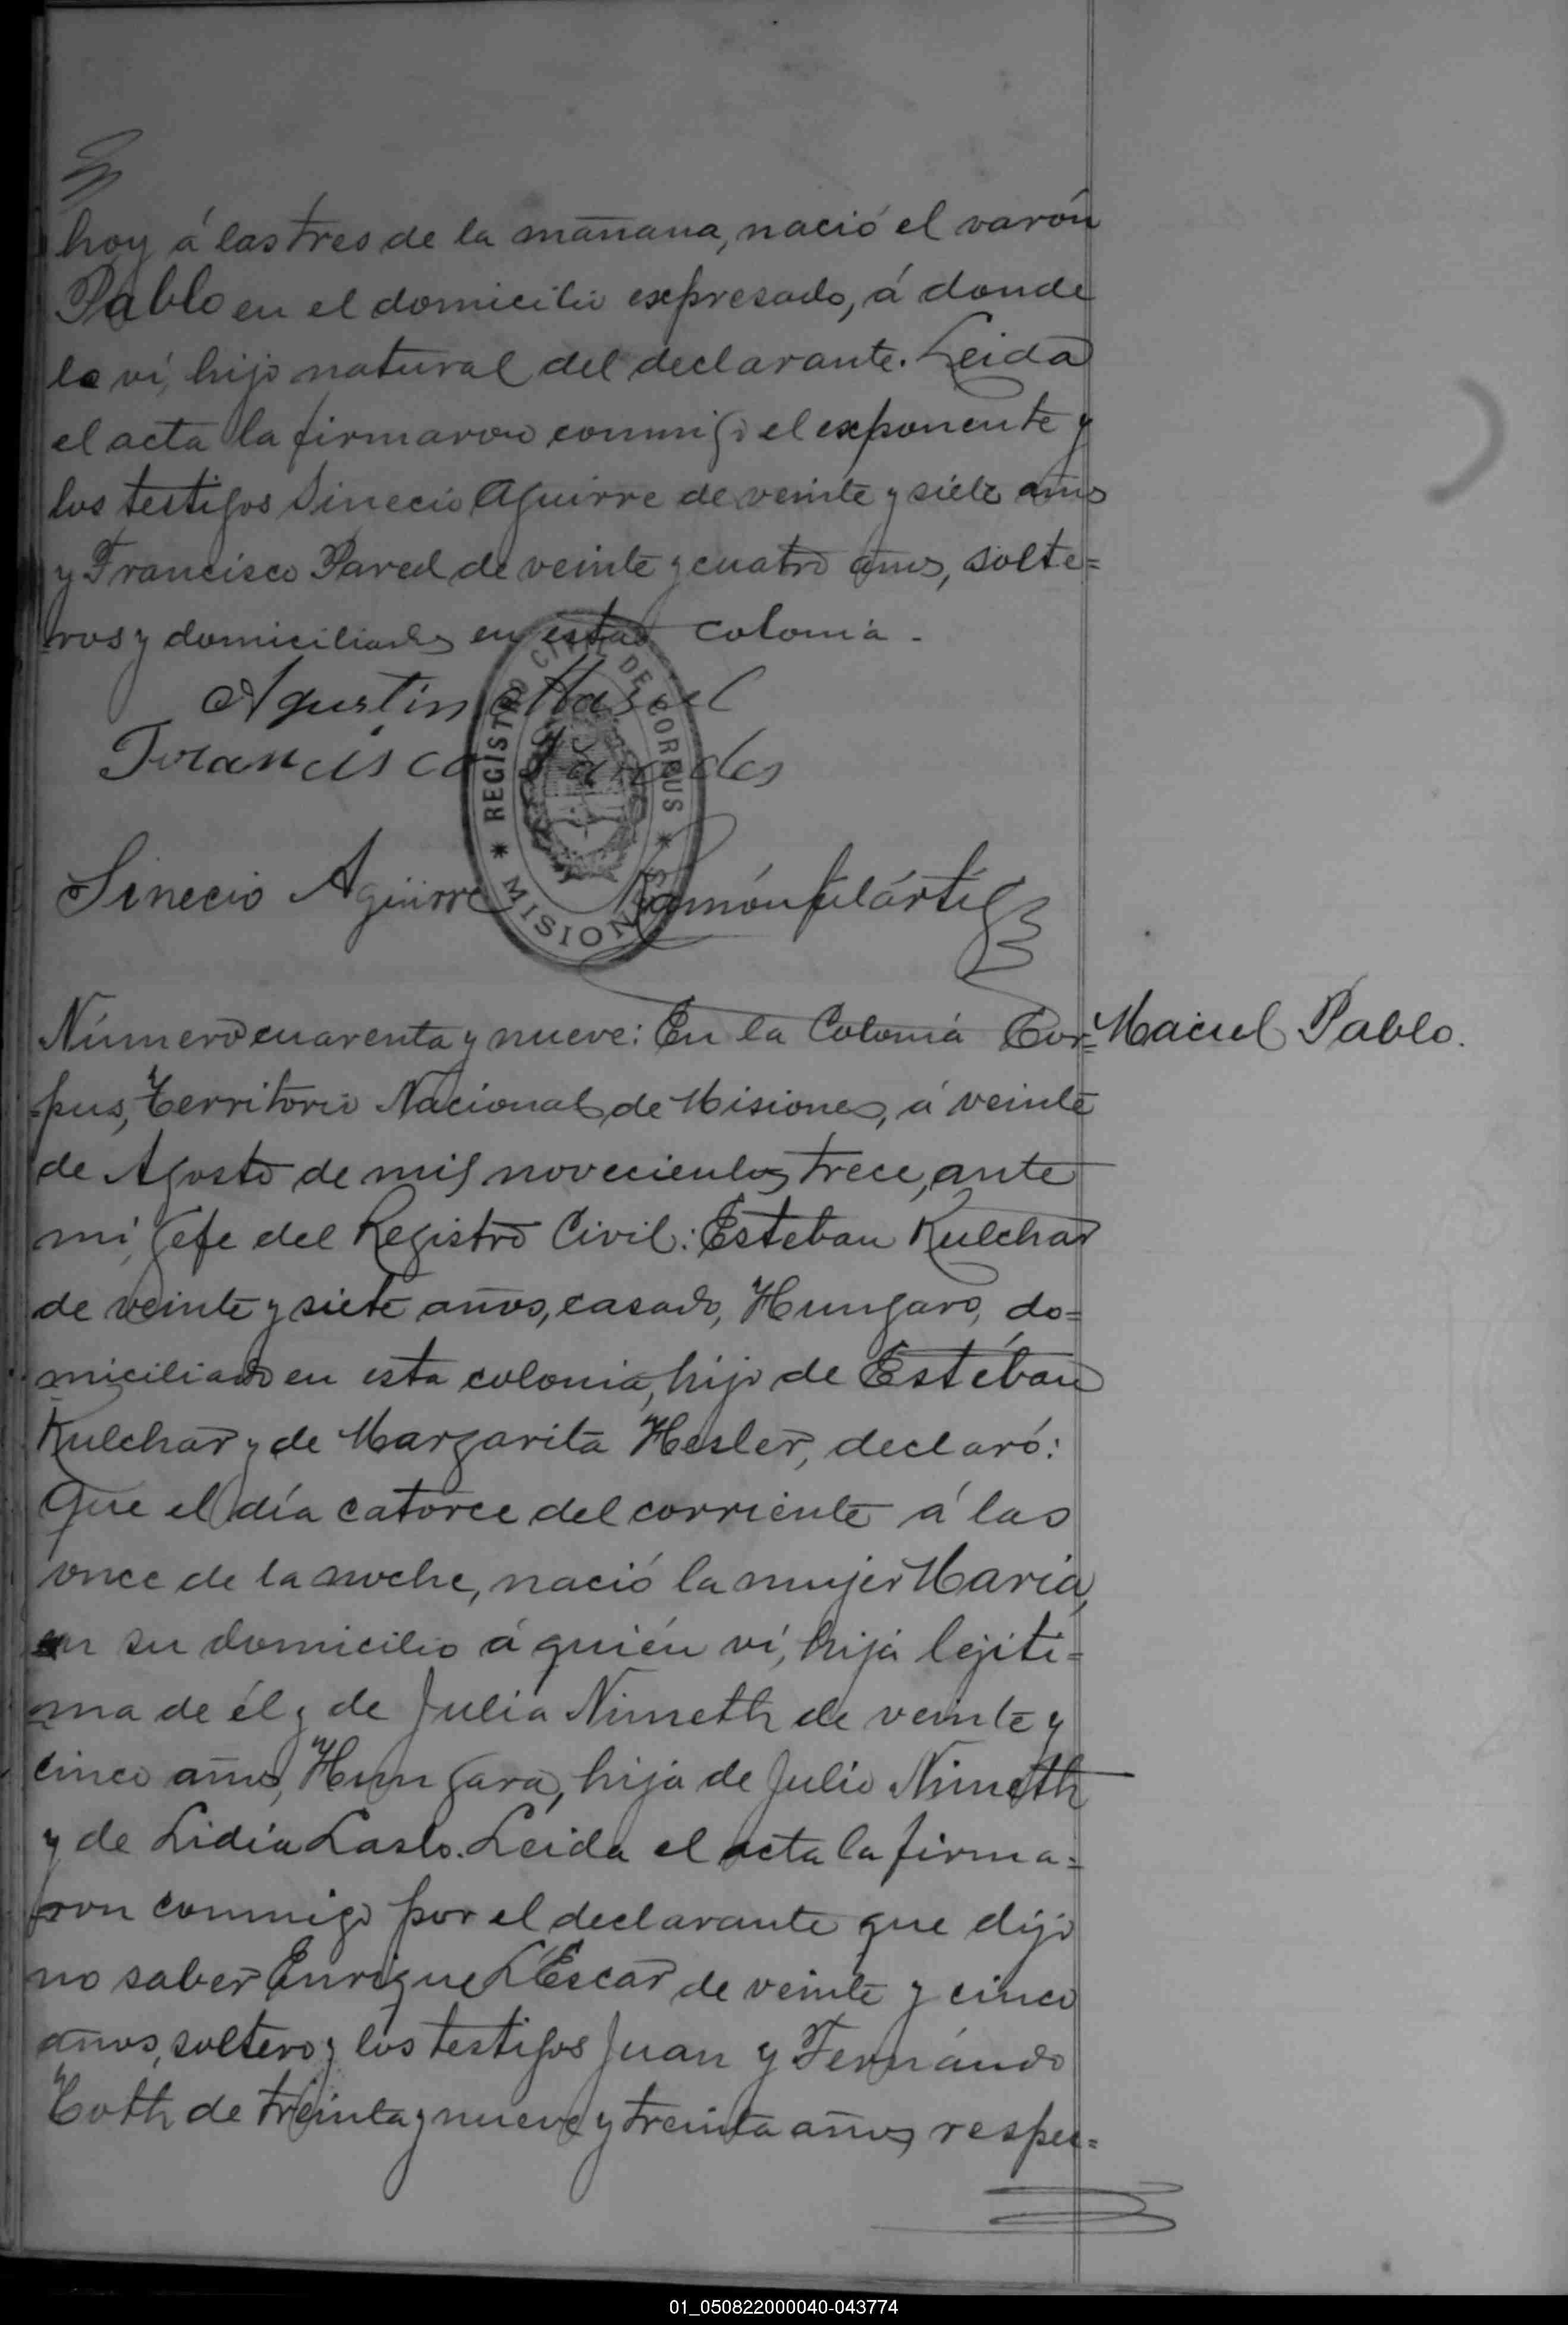 hoy á las tres de la mañana, nació el varón
Pablo en el domicilio expresado, á donde
lo ví, hijo natural del declarante. Leida
el acta la firmaron conmigo el exponente y
los testigos Sinecio Aguirre de veinte y siete años
y Francisco Pared de veinte y cuatro años, solte=
ros y domiciliados en esta colonia.
Agustin Masiel
Francisco Paredes
REGISTRO CIVIL DE CORPUS * MISIONES *
Sinecio Agüirre Ramón
Número cuarenta y nueve: En la Colonia Cor=
Maciel Pablo.
pus, Territorio Nacional de Misiones, á veinte
de Agosto de mil novecientos trece, ante
mí, Gefe del Registro Civil: Esteban Kulchar
de veinte y siete años, casado, Hungaro, do=
miciliado en esta colonia, hijo de Estéban
Kulchar y de Margarita Hesler, declaró:
Que el día catorce del corriente á las
once de la noche, nació la mujer María,
en su domicilio á quién ví, hija lejiti=
ma de él y de Julia Nimeth de veinte y
cinco años, Hungara, hija de Julio Nimeth
y de Lidia Laslo. Leida el acta la firma=
ron conmigo por el declarante que dijo
no saber Enrique L'Escar de veinte y cinco
años, soltero y los testigos Juan y Fernándo
Toth de treinta y nueve y treinta años, respec=
01_050822000040-043774